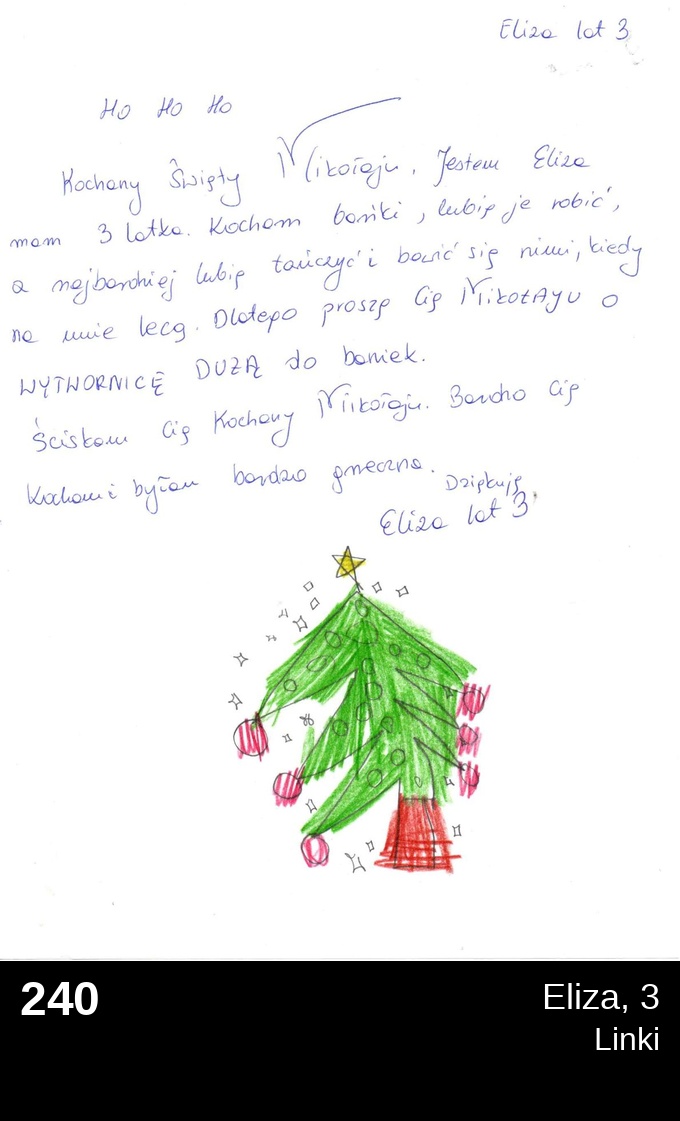 Eliza lat 3
Ho Ho Ho
Kochany Święty Mikołaju. Jestem Eliza
mam 3 latka. Kocham bańki, lubię je robić,
a najbardziej lubię tańczyć i bawić się nimi, kiedy
na mnie lecą. Dlatego proszę Cię MikołAJU o
WYTWORNICĘ DUŻĄ do baniek.
Ściskam Cię Kochany Mikołaju. Bardzo Cię
Kocham i byłam bardzo grzeczna.
Dziękuję
Eliza lat 3
240
Eliza, 3
Linki